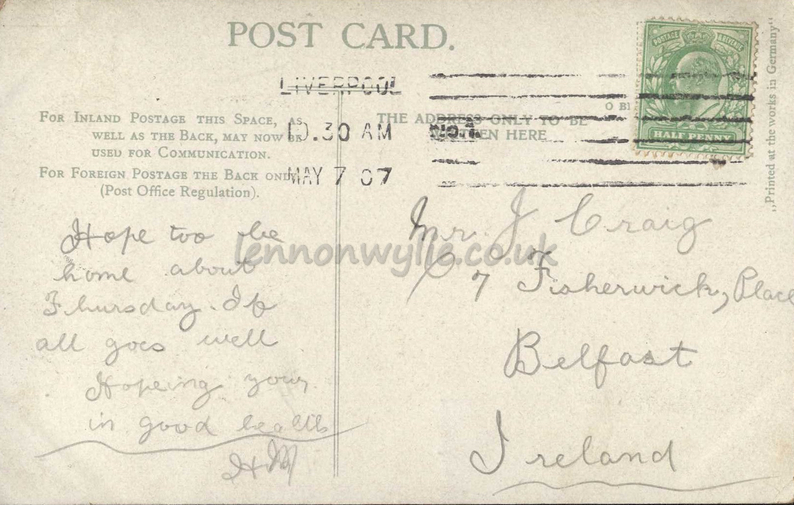 POST CARD.
LIVERPOOL
10.30 AM
MAY 7 07
FOR INLAND POSTAGE THIS SPACE, AS
WELL AS THE BACK, MAY NOW BE
USED FOR COMMUNICATION.
FOR FOREIGN POSTAGE THE BACK ONLY
(Post Office Regulation).
THE ADDRESS ONLY TO BE
WRITTEN HERE
POSTAGE
HALF PENNY
„Printed at the works in Germany“
Hope too be
home about
Thursday. If
all goes well
Hopeing your
in good health
HM
Mr J Craig
7 Fisherwick, Place
Belfast
Ireland
lennonwylie.co.uk